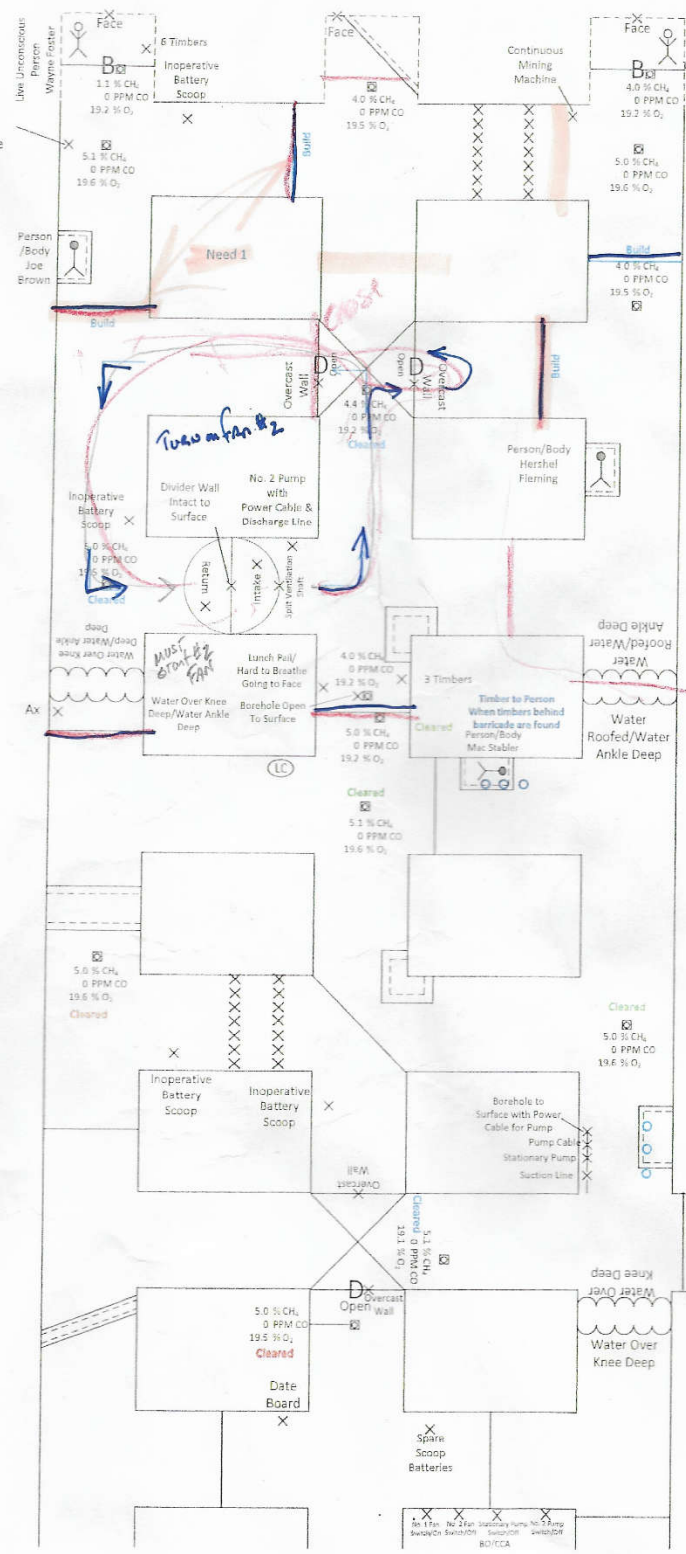 Face
Face
Face
Live Unconscious
Person
Wayne Foster
6 Timbers
B
1.1 % CH₄
0 PPM CO
19.2 % O₂
Inoperative
Battery
Scoop
4.0 % CH₄
0 PPM CO
19.5 % O₂
Continuous
Mining
Machine
B
4.0 % CH₄
0 PPM CO
19.2 % O₂
5.1 % CH₄
0 PPM CO
19.6 % O₂
Build
5.0 % CH₄
0 PPM CO
19.6 % O₂
Person
/Body
Joe
Brown
Need 1
Build
4.0 % CH₄
0 PPM CO
19.5 % O₂
Build
Overcast
Wall
D
Open
D
Open
Overcast
Wall
Build
4.4 % CH₄
0 PPM CO
19.2 % O₂
Cleared
Turn on Fan #2
Divider Wall
Intact to
Surface
No. 2 Pump
with
Power Cable &
Discharge Line
Person/Body
Hershel
Fleming
Inoperative
Battery
Scoop
5.0 % CH₄
0 PPM CO
19.6 % O₂
Cleared
Return
Intake
Split Ventilation
Shaft
Water Over Knee
Deep/Water Ankle
Deep
MUST
START #2
FAN
Lunch Pail/
Hard to Breathe
Going to Face
4.0 % CH₄
0 PPM CO
19.2 % O₂
3 Timbers
Water
Roofed/Water
Ankle Deep
Ax
Water Over Knee
Deep/Water Ankle
Deep
Borehole Open
To Surface
5.0 % CH₄
0 PPM CO
19.2 % O₂
Cleared
Timber to Person
When timbers behind
barricade are found
Person/Body
Mac Stabler
Water
Roofed/Water
Ankle Deep
LC
Cleared
5.1 % CH₄
0 PPM CO
19.6 % O₂
5.0 % CH₄
0 PPM CO
19.6 % O₂
Cleared
Cleared
5.0 % CH₄
0 PPM CO
19.6 % O₂
Inoperative
Battery
Scoop
Inoperative
Battery
Scoop
Borehole to
Surface with Power
Cable for Pump
Pump Cable
Stationary Pump
Suction Line
Overcast
Wall
Cleared
5.1 % CH₄
0 PPM CO
19.1 % O₂
D
Open
Overcast
Wall
5.0 % CH₄
0 PPM CO
19.6 % O₂
Cleared
Water Over
Knee Deep
Water Over
Knee Deep
Date
Board
Spare
Scoop
Batteries
No. 1 Fan
Switch/On
No. 2 Fan
Switch/Off
Stationary Pump
Switch/Off
No. 2 Pump
Switch/Off
BO/CCA